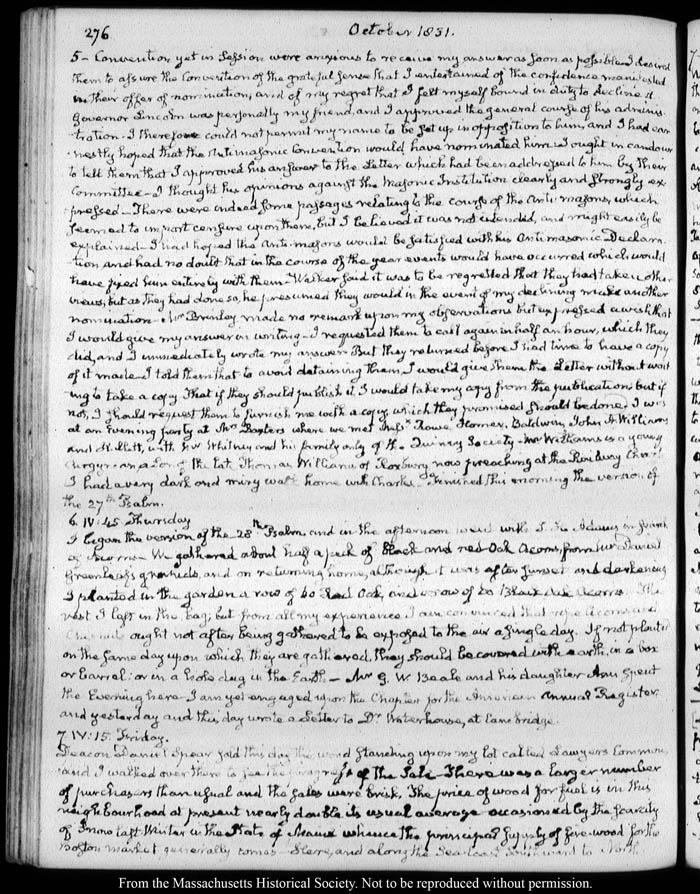 276 October 1831.
5 – Convention yet in Session were anxious to receive my answer as soon as possible I desired
them to assure the Convention of the grateful sense that I entertained of the confidence manifested
in their offer of nomination, and of my regret that I felt myself bound in duty to decline it.
Governor Lincoln was personally my friend, and I approved the general course of his adminis-
tration. I therefore could not permit my name to be set up in opposition to him, and I had ear
nestly hoped that the Antimasonic Convention would have nominated him. I ought in candour
to tell them that I approved his answer to the Letter which had been addressed to him by their
Committee – I thought his opinions against the Masonic Institution clearly and strongly ex-
pressed – There were indeed some passages relating to the course of the Anti-masons, which
seemed to import censure upon them, but I believed it was not intended, and might easily be
explained – I had hoped the Anti-masons would be satisfied with his Antimasonic Declara
tion and had no doubt that in the course of the year events would have occurred which would
have fixed him entirely with them – Walker said it was to be regretted that they had taken other
views, but as they had done so, he presumed they would in the event of my declining make another
nomination – Mr Brinley made no remark upon my observations but expressed a wish that
I would give my answer in writing – I requested them to call again in half an hour, which they
did, and I immediately wrote my answer – But they returned before I had time to have a copy
of it made – I told them that to avoid detaining them, I would give them the Letter without wait
ing to take a copy. That if they should publish it, I would take my copy from the publication; but if
not, I should request them to furnish me with a copy, which they promised should be done. I was
at an Evening party at Mr Baxters where we met Rowe, Homer, Baldwin, John A Williams
and with Mr Whitney and his family only of the Quincy Society – Mr Williams is a young
a Son of the late Thomas Williams of Roxbury now preaching at the Roxbury
I had a very dark and miry walk home with Charles – Finished this morning the version of
the 27th Psalm.
6. IV:45 Thursday
I began the version of the 28th Psalm, and in the afternoon went with I. H. Adams in search
of Acorns – We gathered about half a peck of Black and red Oak Acorns, from Mr Daniel
Greenleafs grounds, and on returning home, although it was after Sunset and darkening
I planted in the garden a row of 60 Red Oak, and a row of 60 Black Oak Acorns. The
rest I left in the bag; but from all my experience I am convinced that ripe Acorns and
Chesnuts ought not after being gathered to be exposed to the air a single day. If not planted
on the same day upon which they are gathered, they should be covered with earth, in a box
or barrel: or in a hole dug in the Earth – Mr G. W. Beale and his daughter Ann spent
the Evening here – I am yet engaged upon the Chapter for the American Annual Register
and yesterday and this day wrote a Letter to Dr Waterhouse, at Cambridge.
7 IV:15. Friday.
Deacon Daniel Spear sold this day the wood standing upon my lot called Lawyers Common,
and I walked over there to see the progress of the Sale – There was a larger number
of purchasers than usual and the sales were brisk. The price of wood for fuel is in this
neighbourhood at present nearly double its usual average occasioned by the scarcity
of Snow last Winter in the State of Maine whence the principal supply of fire-wood for the
Boston market generally comes – Here, and along the Sea-Coast Southward to North
From the Massachusetts Historical Society. Not to be reproduced without permission.